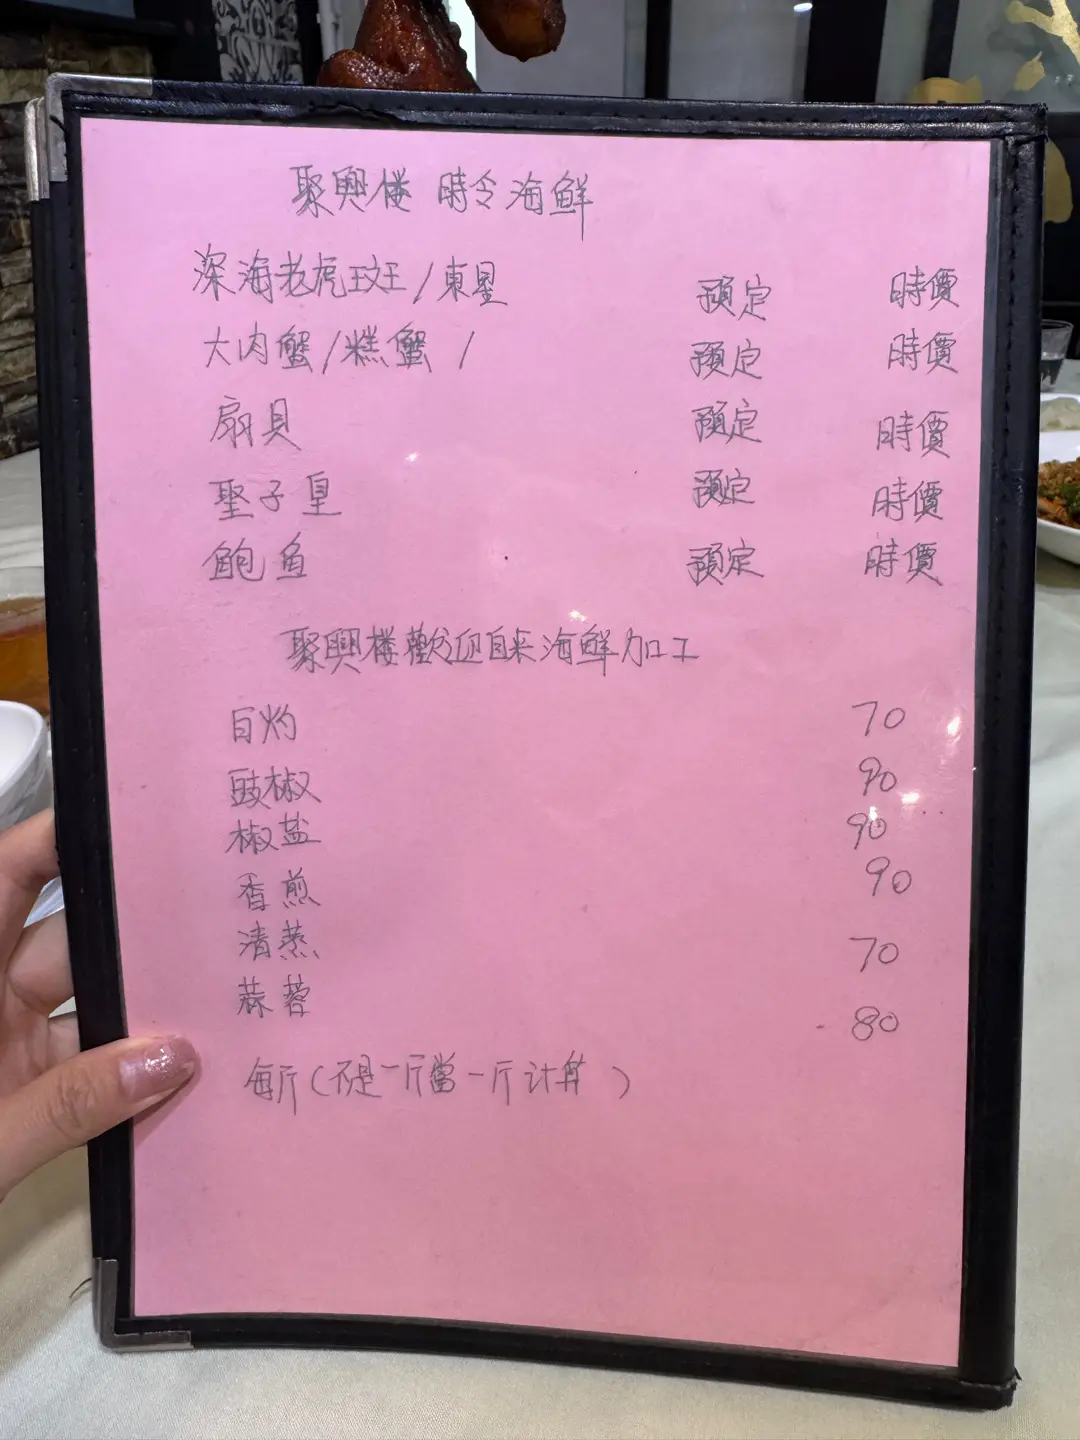 聚興楼 時令海鮮
深海老虎斑/東星 預定 時價
大肉蟹/糕蟹 / 預定 時價
扇貝 預定 時價
聖子皇 預定 時價
鲍鱼 預定 時價
聚興楼歡迎自来海鮮加工
白灼 70
豉椒 90
椒盐 90
香煎 90
清蒸 70
蒜蓉 80
每斤(不是一斤當一斤计算)